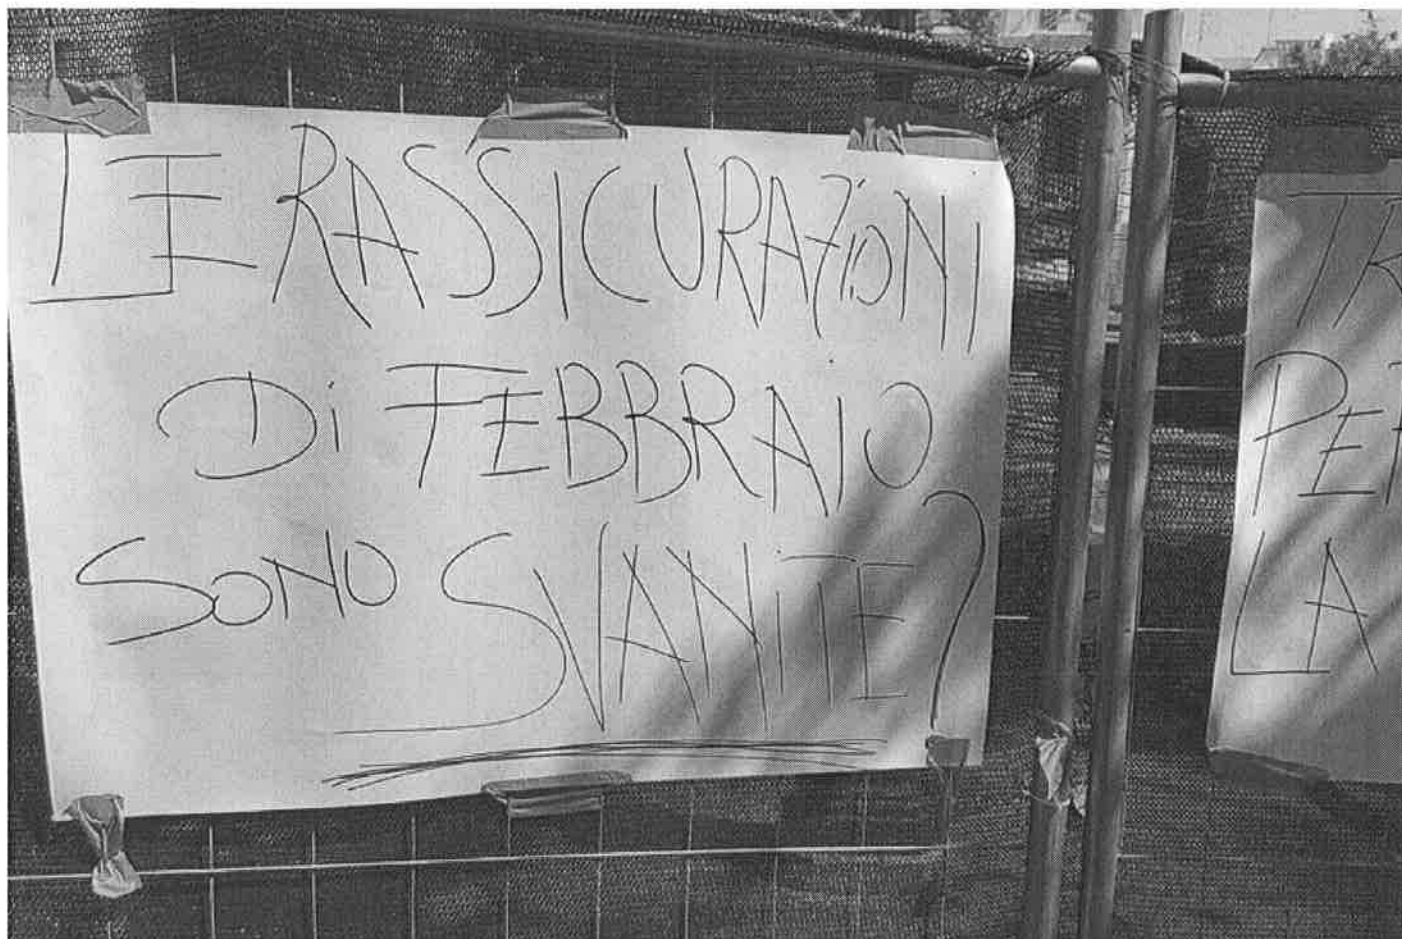 LE RASSICURAZiONI
Di FEBBRAIO
SONO SVANiTE?
LA